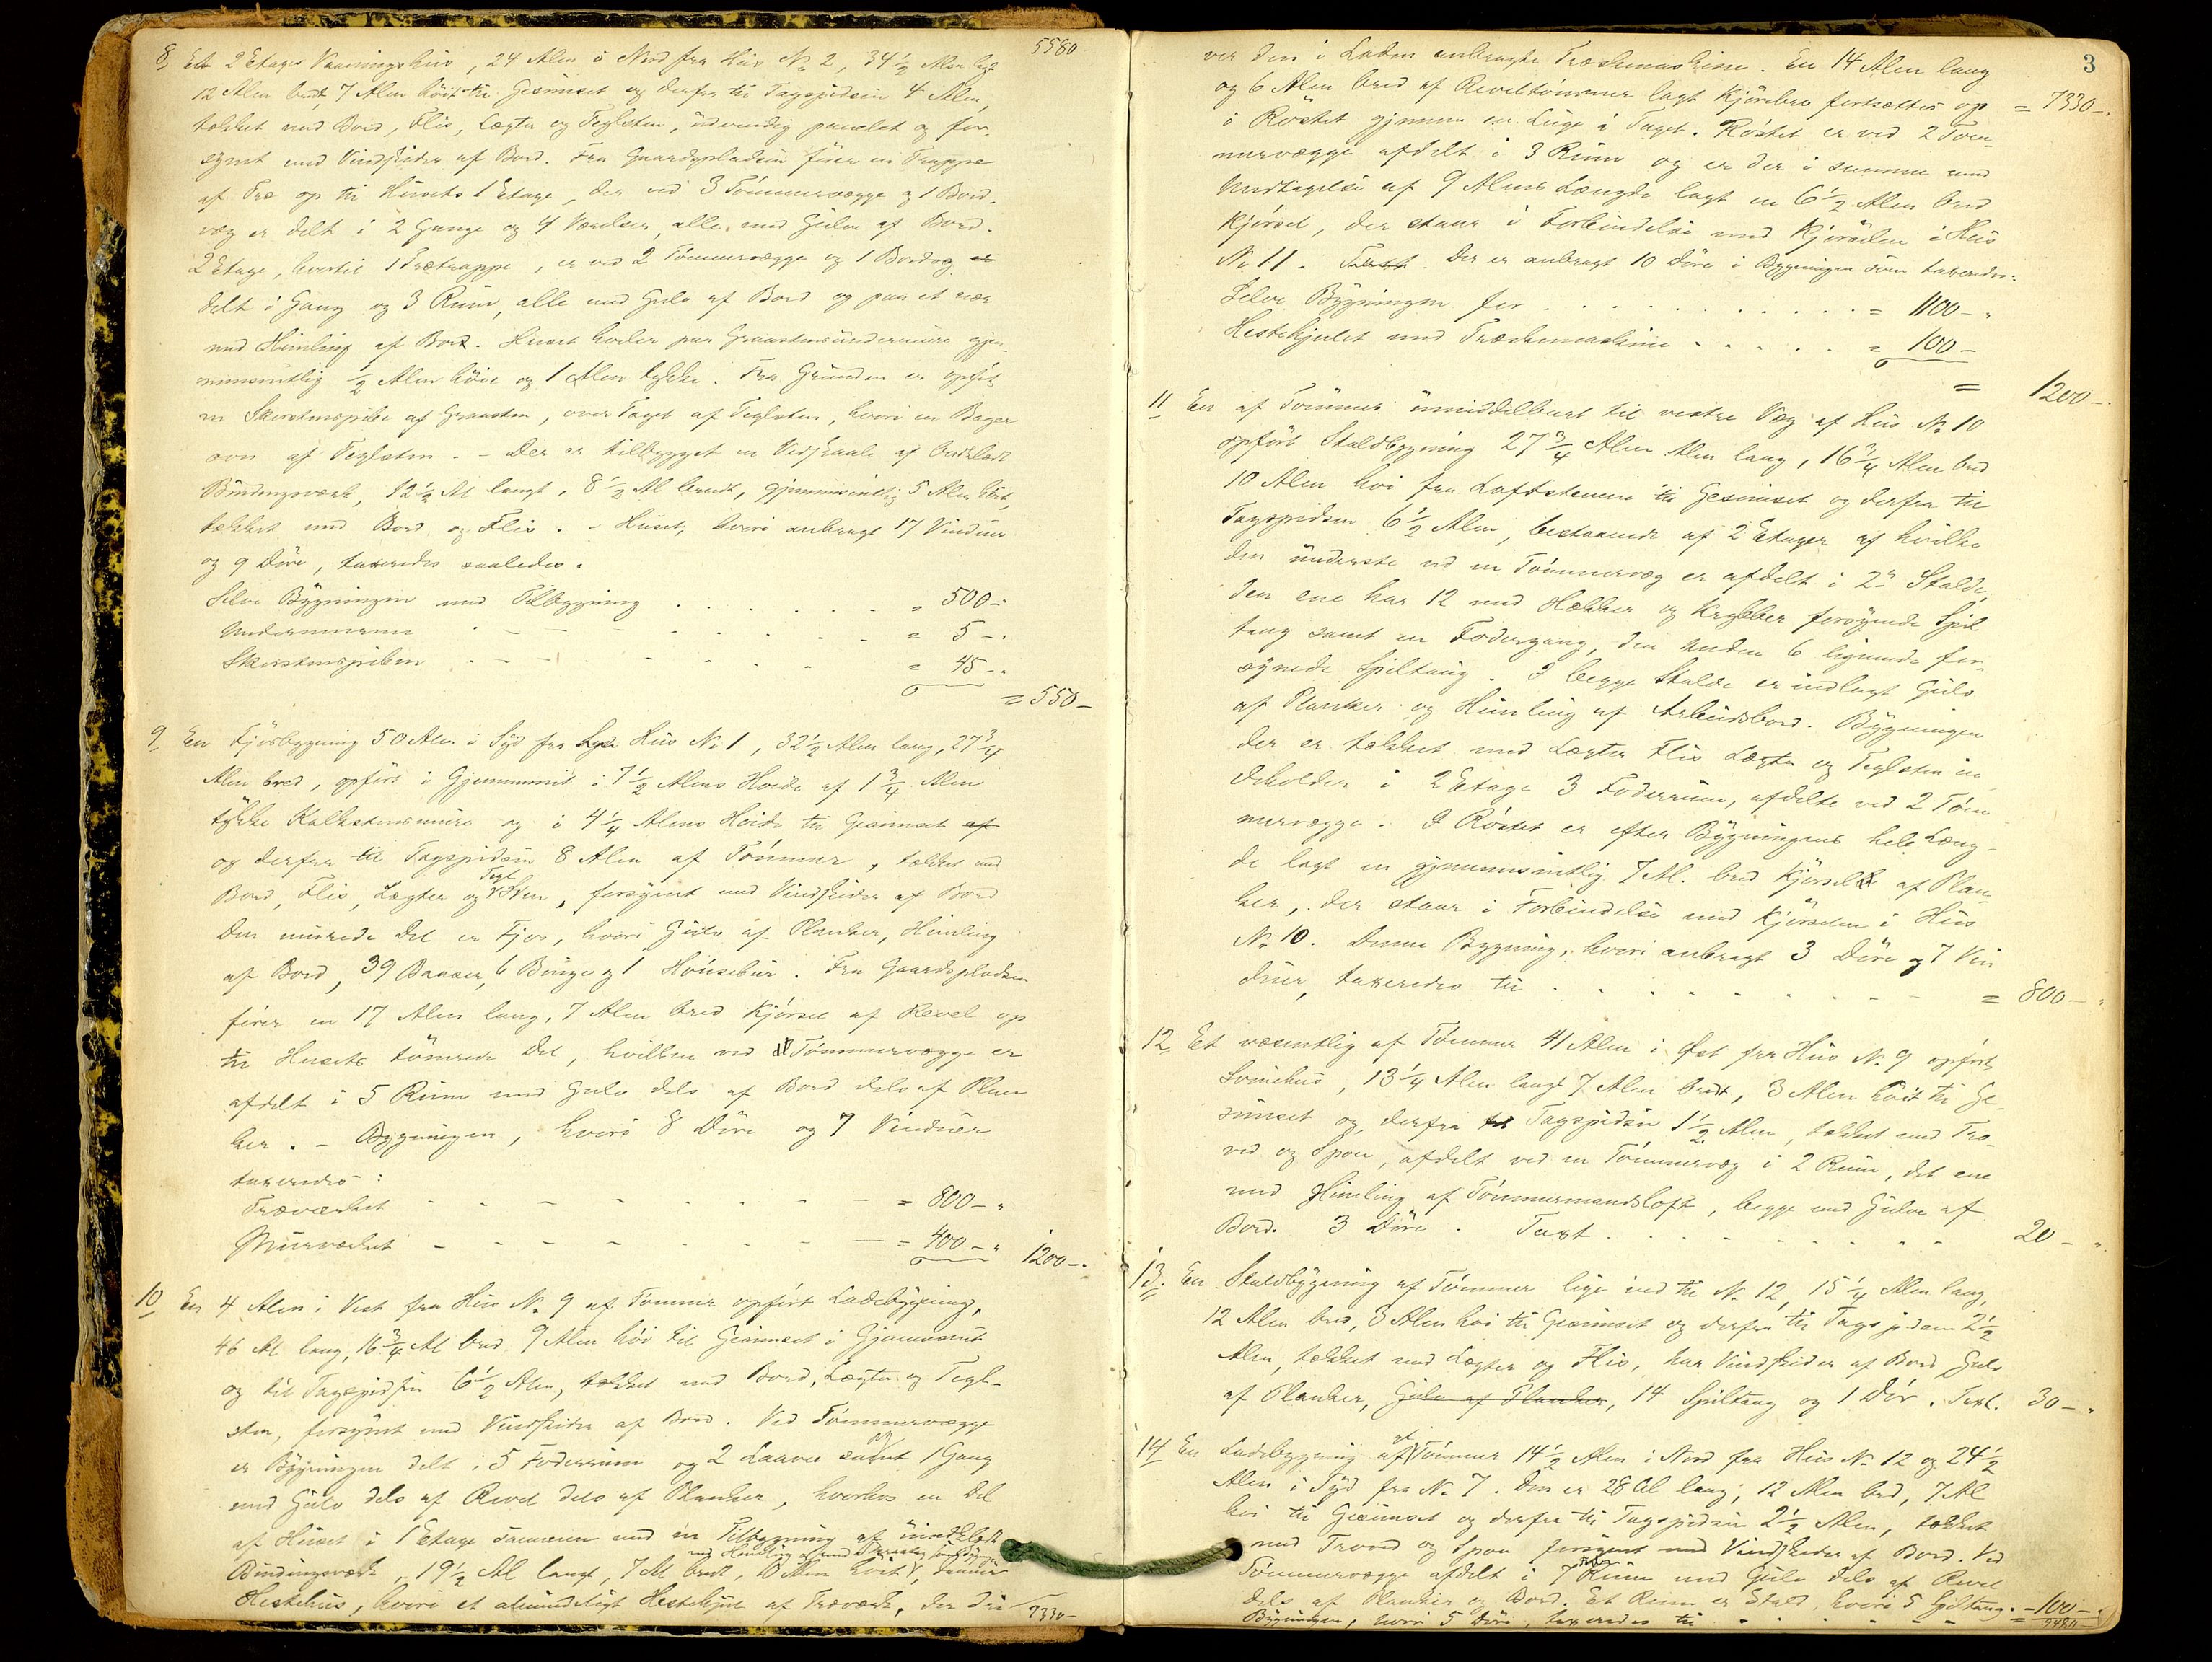 5580
8, Et 2 Etages Vaaningshus, 24 Alen i Nord fra Hus No 2, 34 1/2 Alen langt
12 Alen bredt, 7 Alen höit til Gesimset og derfra til Tagspidsen 4 Alen,
tækket med Bord, Flis, Lægter og Teglsten, udvendig panelet og for-
synet med Vindskider af Bord. Fra Gaardspladsen fører en Trappe
af Træ op til Husets 1 Etage, der ved 3 Tömmervægge og 1 Bord-
væg er delt i 2 Gange og 4 Værelser, alle med Gulve af Bord.
2 Etage, hvortil 1 Trætrappe, er ved 2 Tömmervægge og 1 Bordvæg er
delt i Gang og 3 Rum, alle med Gulv af Bord og paa et nær
med Himling af Bord. Huset hviler paa Graastensundermure gjen-
nemsnitlig 1/2 Alen höie og 1 Alen tykke. Fra Grunden er opført
en Skorstenspibe af Graasten, over Taget af Teglsten, hvori en Bager
ovn af Teglsten. - Der er tilbygget en Vedskaale af bordklædt
Bindingsværk, 12 1/2 Al langt, 8 1/2 Al bredt, gjennemsnitlig 5 Alen höit,
tækket med Bord og Flis. - Huset, hvori anbragt 17 Vinduer
og 9 Döre, taxeredes saaledes:
Selve Bygningen med Tilbygning = 500-
Undermurene = 5-
Skorstenspiben = 45-
= 550-
9, En Fjösbygning 50 Alen i Syd fra Hus No 1, 32 1/2 Alen lang, 27 3/4
Alen bred, opført i Gjennemsnit i 7 1/2 Alens Höide af 1 3/4 Alen
tykke Kalkstensmure og i 4 1/4 Alens Höide til Gesimset af
og derfra til Tagspidsen 8 Alen af Tömmer, tækket med
Bord, Flis, Lægter og Teglsten, forsynet med Vindskider af Bord
Den murede Del er Fjös, hvori Gulv af Planker, Himling
af Bord, 39 Baaser, 6 Binge og 1 Hönsebur. Fra Gaardspladsen
fører en 17 Alen lang, 7 Alen bred Kjörsel af Revel op
til Husets tömrede Del, hvilken ved Tömmervægge er
afdelt i 5 Rum med Gulv dels af Bord dels af Plan
ker. - Bygningen, hvori 8 Döre og 7 Vinduer
taxeredes:
Træværket = 800-
Murværket = 400- 1200-
10, En 4 Alen i Vest fra Hus No 9 af Tömmer opført Ladebygning,
46 Al lang, 16 3/4 Al bred 9 Alen höi til Gesimset i Gjennemsnit
og til Tagspidsen 6 1/2 Alen, tækket med Bord, Lægter og Tegl-
sten, forsynet med Vindskider af Bord. Ved Tömmervægge
er Bygningen delt i 5 Foderrum og 2 Laaver samt 1 Gang
med Gulv dels af Revel dels af Planker, hvorhos en Del
af Huset i 1 Etage sammen med en Tilbygning af
med Himling
Bindingsværk, 19 1/2 Al langt, 7 Al bredt, 10 Alen höit, danner
Hestehus, hvori et almindeligt Hestehjul af Træværk, der dri
7330-
3
ver den i Laden anbragte Træskemaskine. En 14 Alen lang
og 6 Alen bred af Reveltömmer lagt Kjörebro fortsættes op = 7330-
i Röstet gjennem en Luge i Taget. Röstet er ved 2 Töm-
mervægge afdelt i 3 Rum og er der i samme med
Undtagelse af 9 Alens Længde lagt en 6 1/2 Alen bred
Kjörsel, der staar i Forbindelse med Kjörselen i Hus
No 11. Taxt. Der er anbragt 10 Döre i Bygningen som taxeredes:
Selve Bygningen for = 1100-
Hestehjulet med Træskemaskine = 100-
= 1200-
11 En af Tömmer umiddelbart til vestre Væg af Hus No 10
opført Staldbygning 27 3/4 Alen Alen lang, 16 3/4 Alen bred
10 Alen höi fra Loftstenene til Gesimset og derfra til
Tagspidsen 6 1/2 Alen, bestaaende af 2 Etager af hvilke
den underste ved en Tömmervæg er afdelt i 2de Stalde,
den ene har 12 med Hækker og Krybber forsynede Spil
taug samt en Fodergang, den anden 6 lignende for-
synede Spiltaug. I begge Stalde er indlagt Gulv
af Planker og Himling af Arbeidsbord. Bygningen
der er tækket med Lægter Flis Lægter og Teglsten in
deholder i 2 Etage 3 Foderrum, afdelte ved 2 Töm
mervægge. I Röstet er efter Bygningens hele Læng-
de lagt en gjennemsnitlig 7 Al. bred Kjörsel af Plan
ker, der staar i Forbindelse med Kjörselen i Hus
No 10. Denne Bygning, hvori anbragt 3 Döre og 7 Vin
duer, taxeredes til = 800-
12, Et væsentlig af Tömmer 41 Alen i Öst fra Hus No 9 opført
Svinehus, 13 1/4 Alen langt 7 Alen bredt, 3 Alen höit til Ge-
simset og derfra til Tagspidsen 1 1/2 Alen, tækket med Tro-
ved og Spon, afdelt ved en Tömmervæg i 2 Rum, det ene
med Himling af Tömmermandsloft, begge med Gulve af
Bord. 3 Döre. Taxt 20-
13. En Staldbygning af Tömmer lige ind til No 12, 15 1/4 Alen lang,
12 Alen bred, 3 Alen höi til Gesimset og derfra til Tagspidsen 2 1/2
Alen, tækket med Lægter og Flis, har Vindskider af Bord Gulv
af Planker, Gulv af Planker, 14 Spiltaug og 1 Dör. Taxt. 30-
14 En Ladebygning af Tömmer 14 1/2 Alen i Nord fra Hus No 12 og 24 1/2
Alen i Syd fra No 7. Den er 28 Al lang, 12 Alen bred, 7 Al
höi til Gesimset og derfra til Tagspidsen 2 1/2 Alen, tækket
med Troved og Spon forsynet med Vindskider af Bord. Ved
Tömmervægge afdelt i 7 Rum med Gulv dels af Revel
dels af Planker og Bord. Et Rum er Stald, hvori 5 Spiltaug. - 100-
Bygningen, hvori 5 Döre, taxeredes til = 9480-